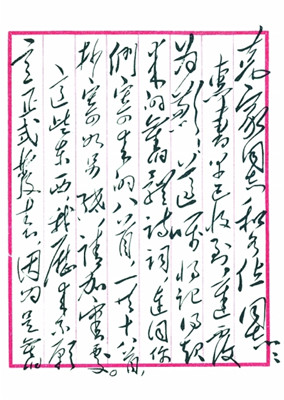 克家同志和各位同志：
惠书早已收到，迟复
为歉！遵嘱将记得起
来的舊體诗词，连同你
们寄来的八首，一共十八首，
抄寄如另纸，请加审处。
这些东西，我历来不愿
意正式发表，因为是舊